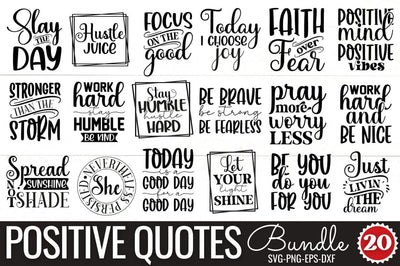 Slay
THE
DAY
Hustle
JUICE
FOCUS
ON THE
good
Today
I CHOOSE
joy
FAITH
over
Fear
POSITIVE
mind
POSITIVE
vibes
STRONGER
THAN THE
STORM
WORK
hard
stay
HUMBLE
BE KIND
Stay
HUMBLE
hustle
HARD
BE BRAVE
be strong
BE FEARLESS
pray
more
WORRY
LESS
WORK
HARD
AND
BE NICE
Spread
SUNSHINE
NOT SHADE
NEVERTHELESS
She
PERSISTED
TODAY
IS A
GOOD DAY
for a
GOOD DAY
LET
YOUR
light
SHINE
BE YOU
do you
FOR YOU
Just
LIVIN'
THE
dream
POSITIVE QUOTES
Bundle
SVG-PNG-EPS-DXF
20